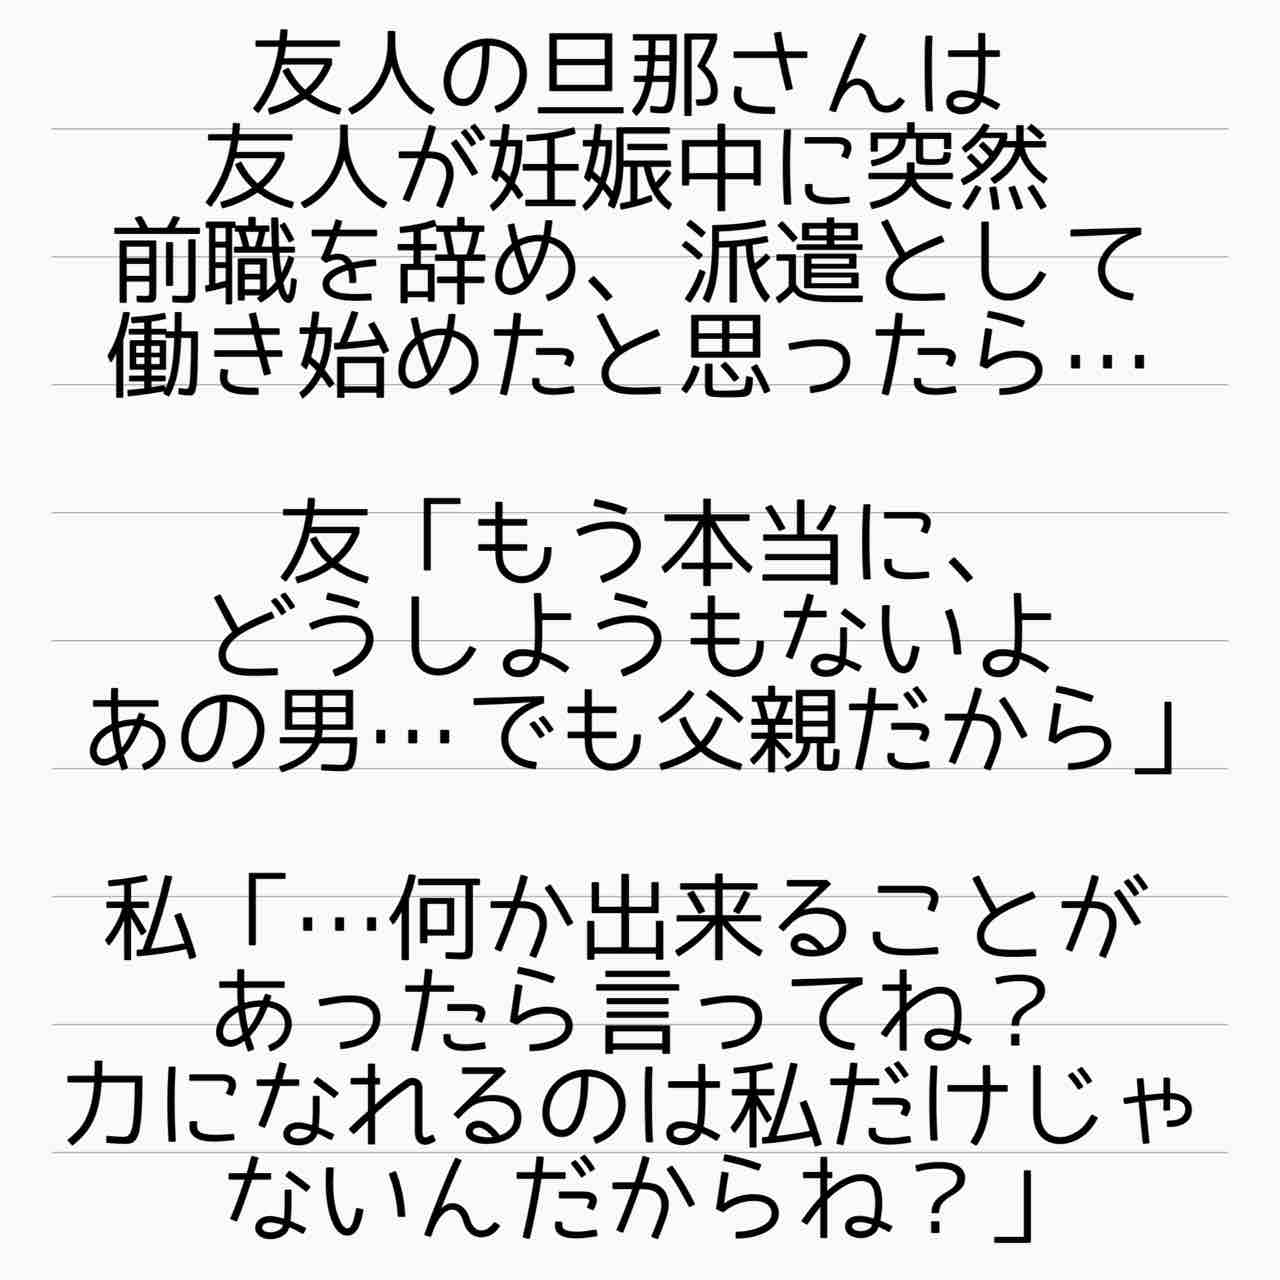 友人の旦那さんは
友人が妊娠中に突然
前職を辞め、派遣として
働き始めたと思ったら…
友「もう本当に、
どうしようもないよ
あの男…でも父親だから」
私「…何か出来ることが
あったら言ってね？
力になれるのは私だけじゃ
ないんだからね？」